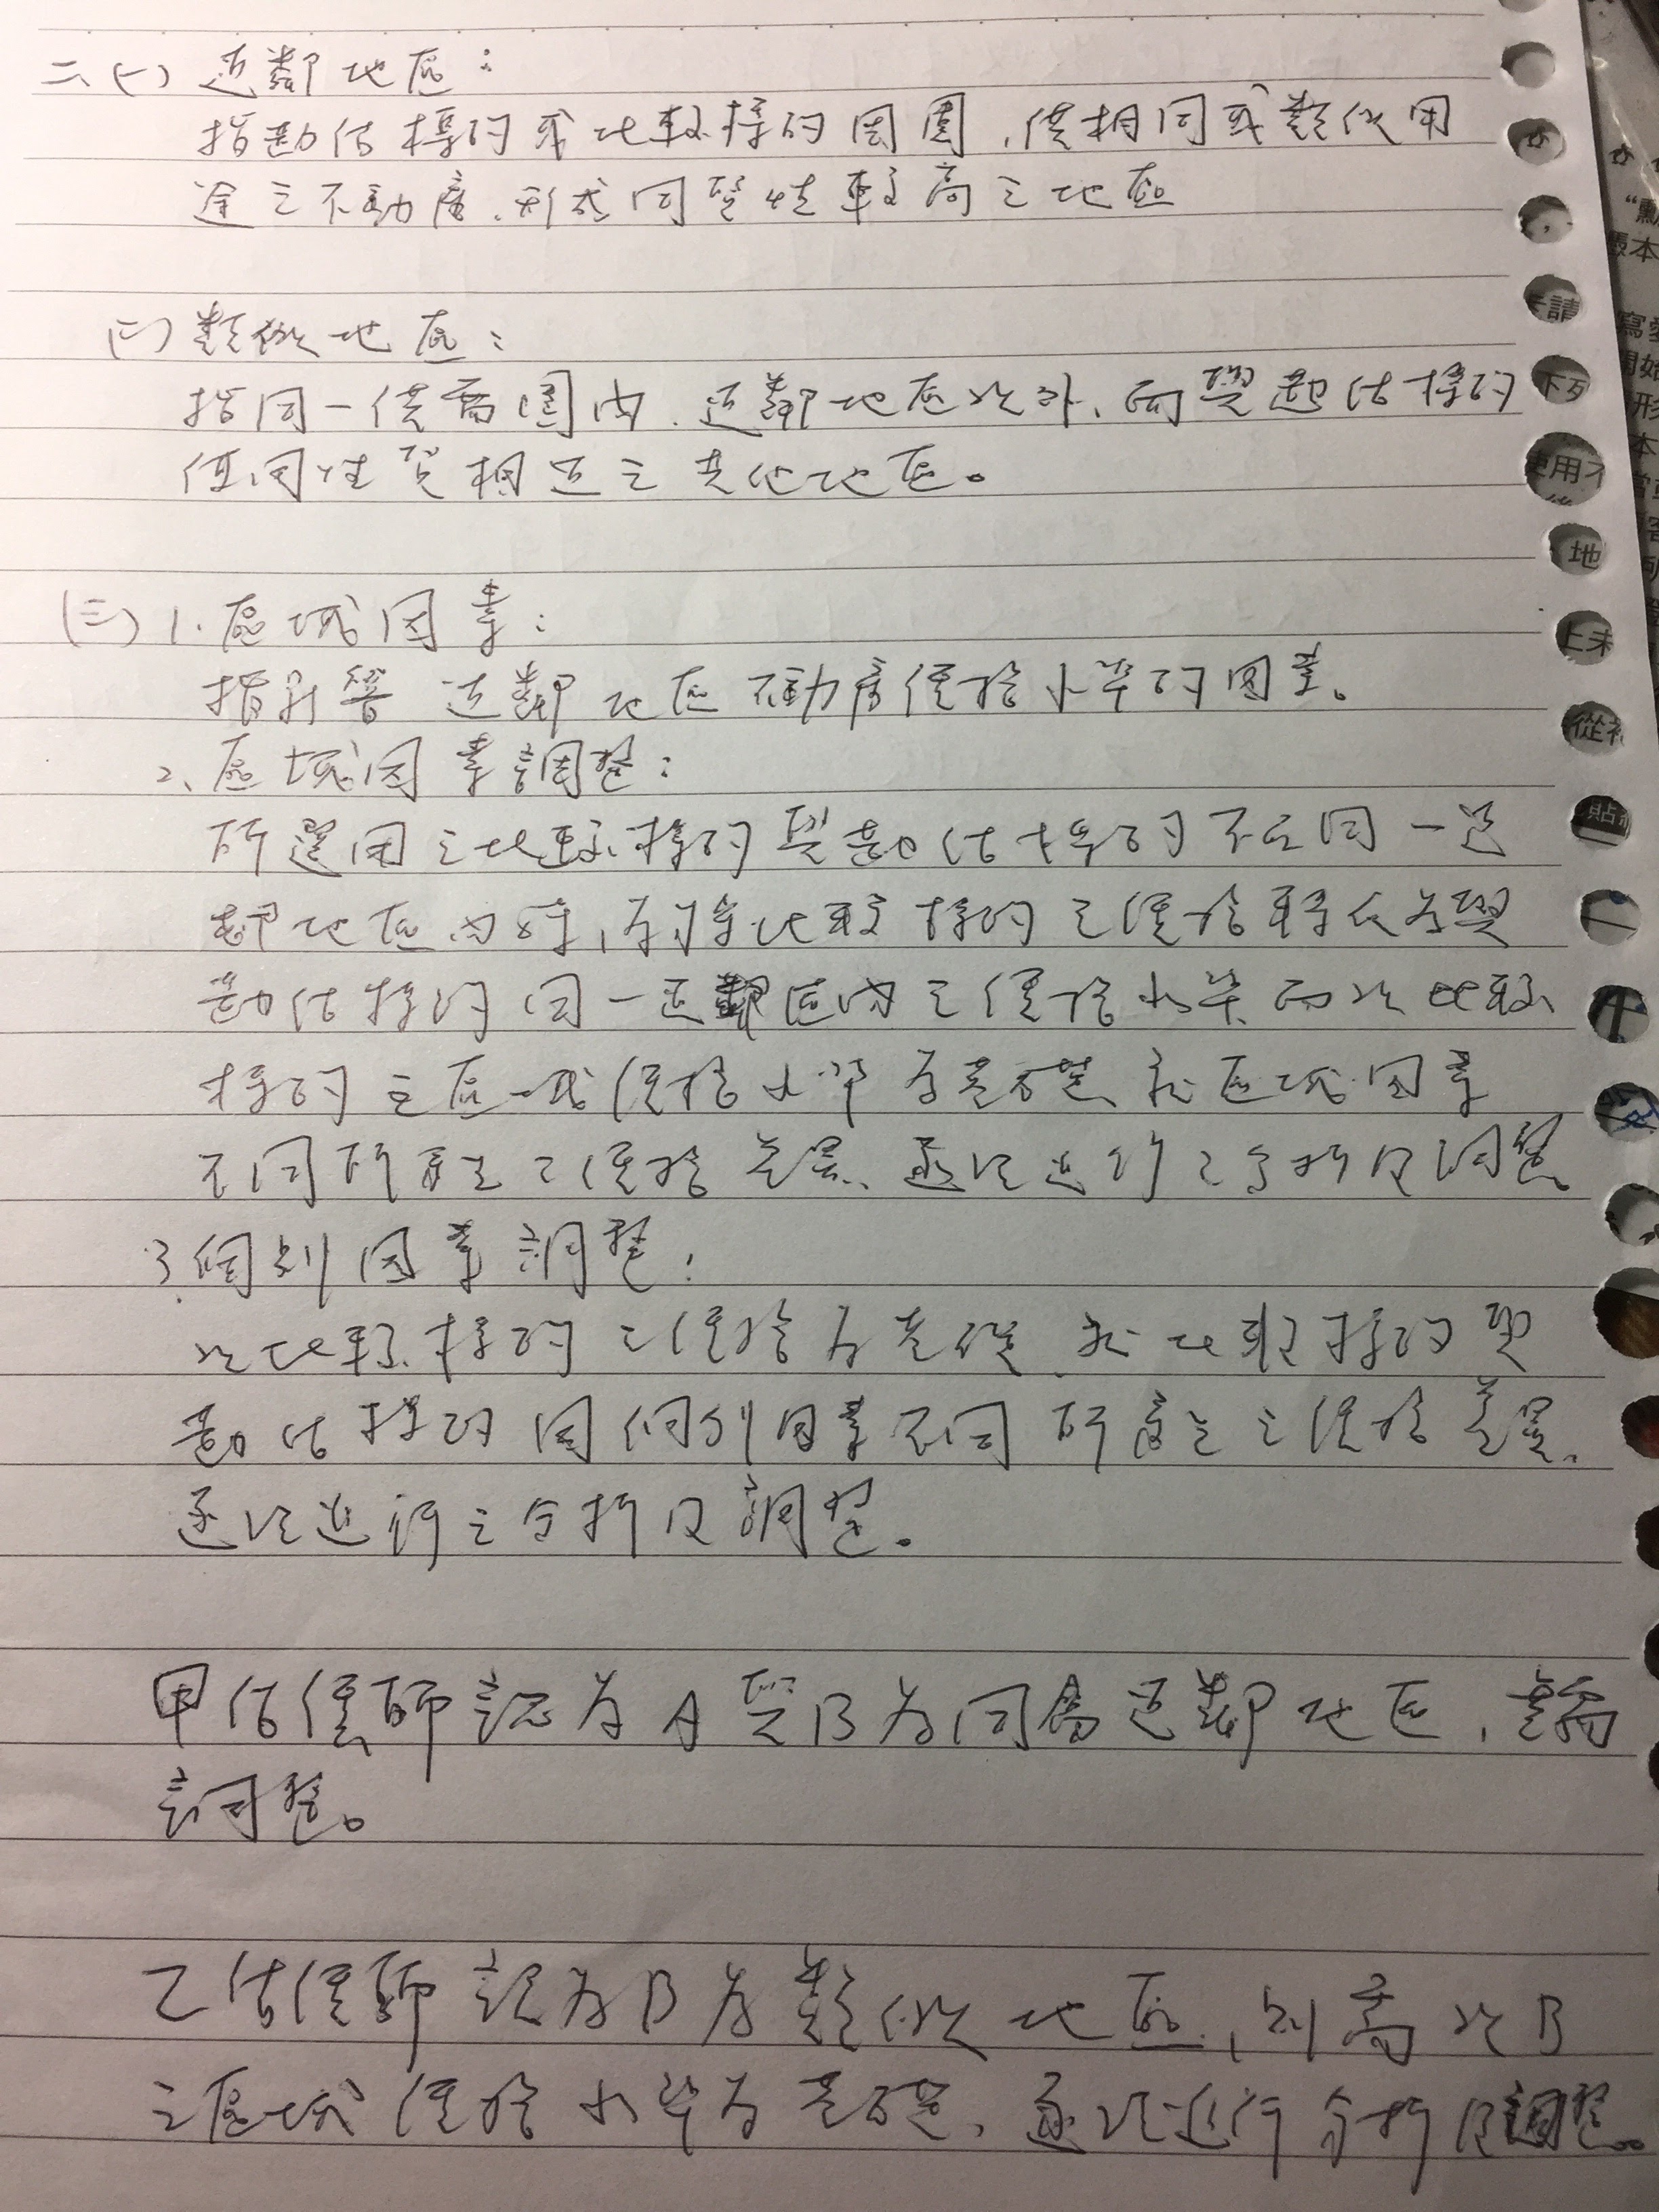 二、(一) 近鄰地區：
指勘估標的或比較標的周圍，供相同或類似用
途之不動產，形成同質性較高之地區
(二) 類似地區：
指同一供需圈內，近鄰地區以外，而與勘估標的
使用性質相近之其他地區。
(三) 1. 區域因素：
指影響近鄰地區不動產價格水準的因素。
2、區域因素調整：
所選用之比較標的與勘估標的不在同一近
鄰地區內時，為將比較標的之價格轉化為與
勘估標的同一近鄰區內之價格水準，而以比較
標的之區域價格水準為基礎、就區域因素
不同所產生之價格差異、逐項進行之分析及調整。
3. 個別因素調整：
以比較標的之價格為基礎、就比較標的與
勘估標的因個別因素不同所產生之價格差異、
逐項進行之分析及調整。
甲估價師認為A與B為同屬近鄰地區，
調整。
乙估價師認為B為類似地區，則需以B
之區域價格水準為基礎、逐項進行分析及調整。
請
下列
使用
地
上
從
貼